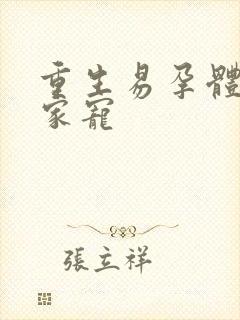 重生易孕體
家寵
張立祥